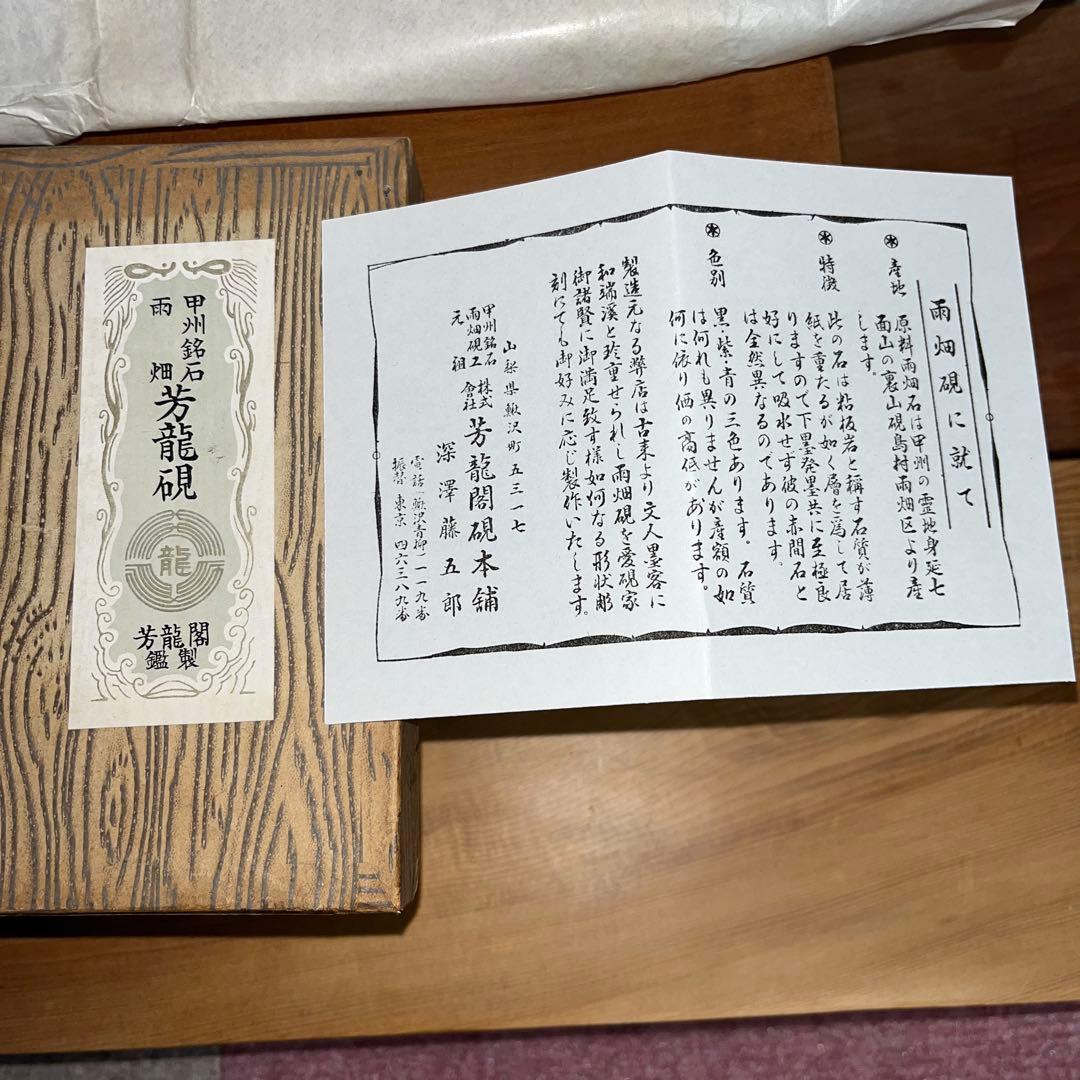 雨畑硯に就て
産地
原料雨畑石は甲州の霊地身延七
面山の裏山硯島村雨畑区より産
します。
特徴
此の石は粘板岩と称す石質が薄
紙を重たるが如く層を為して居
りますので下墨発墨共に至極良
好にして吸水せず彼の赤間石と
は全然異なるのであります。
色別
黒・紫・青の三色あります。石質
は何れも異りませんが産額の如
何に依り価の高低があります。
製造元なる弊店は古来より文人墨客に
和端溪と珍重せられし雨畑硯を愛硯家
御諸賢に御満足致す様如何なる形状彫
刻にても御好みに応じ製作いたします。
山梨県鰍沢町五三一七
甲州銘石
雨畑硯工
元祖
株式
會社
芳龍閣硯本舗
深澤藤五郎
電話(鰍沢青柳)一一九番
振替東京四六三八九番
甲州銘石
雨畑
芳龍硯
龍
芳龍閣
鑑製